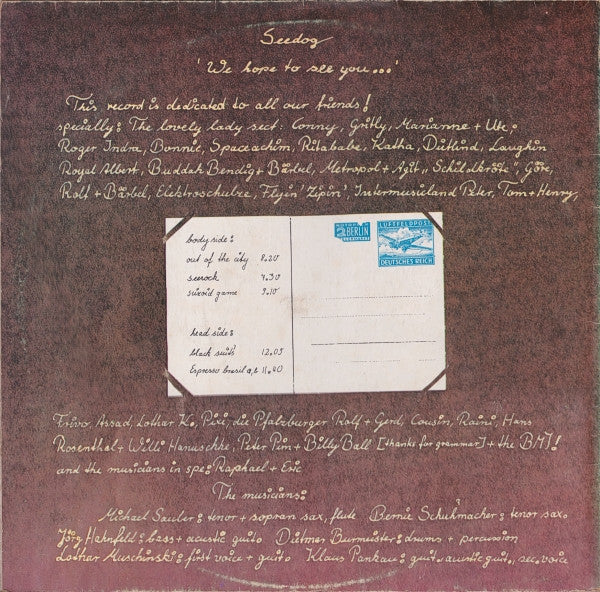 Seedog
'We hope to see you...'
This record is dedicated to all our friends!
specially: The lovely lady sect: Conny, Gritly, Marianne + Ute;
Roger Indra, Bonnie, Spaceachim, Ritababe, Katha, Dutlind, Laughin
Royal Albert, Buddah Bendig + Bärbel, Metropol + Agit „Schildkröte", Göre,
Rolf + Bärbel, Elektroschulze, Flyin' Zipin', Intermusicland Peter, Tom + Henry,
BERLIN
LUFTFELDPOST
DEUTSCHES REICH
body side:
out of the city 8.20
seerock 4.30
sixoid game 9.10
head side:
black suits 12.05
Espresso brasil a,b 11.20
Frivo, Assad, Lothar K., Pixi, die Pfalzburger Rolf + Gerd, Cousin, Raini, Hans
Rosenthal + Willi Hanuschke, Peter Pim + Billy Ball [thanks for grammer] + the BM!
and the musicians in spe: Raphael + Eric
The musicians:
Michael Sauler: tenor + sopran sax, flute Bernie Schuhmacher: tenor sax.
Jörg Hahnfeld: bass + acustic guit. Ditmer Burmeister: drums + percussion
Lothar Muschinski: first voice + guit. Klaus Pankau: guit., acustic guit., sec. voice